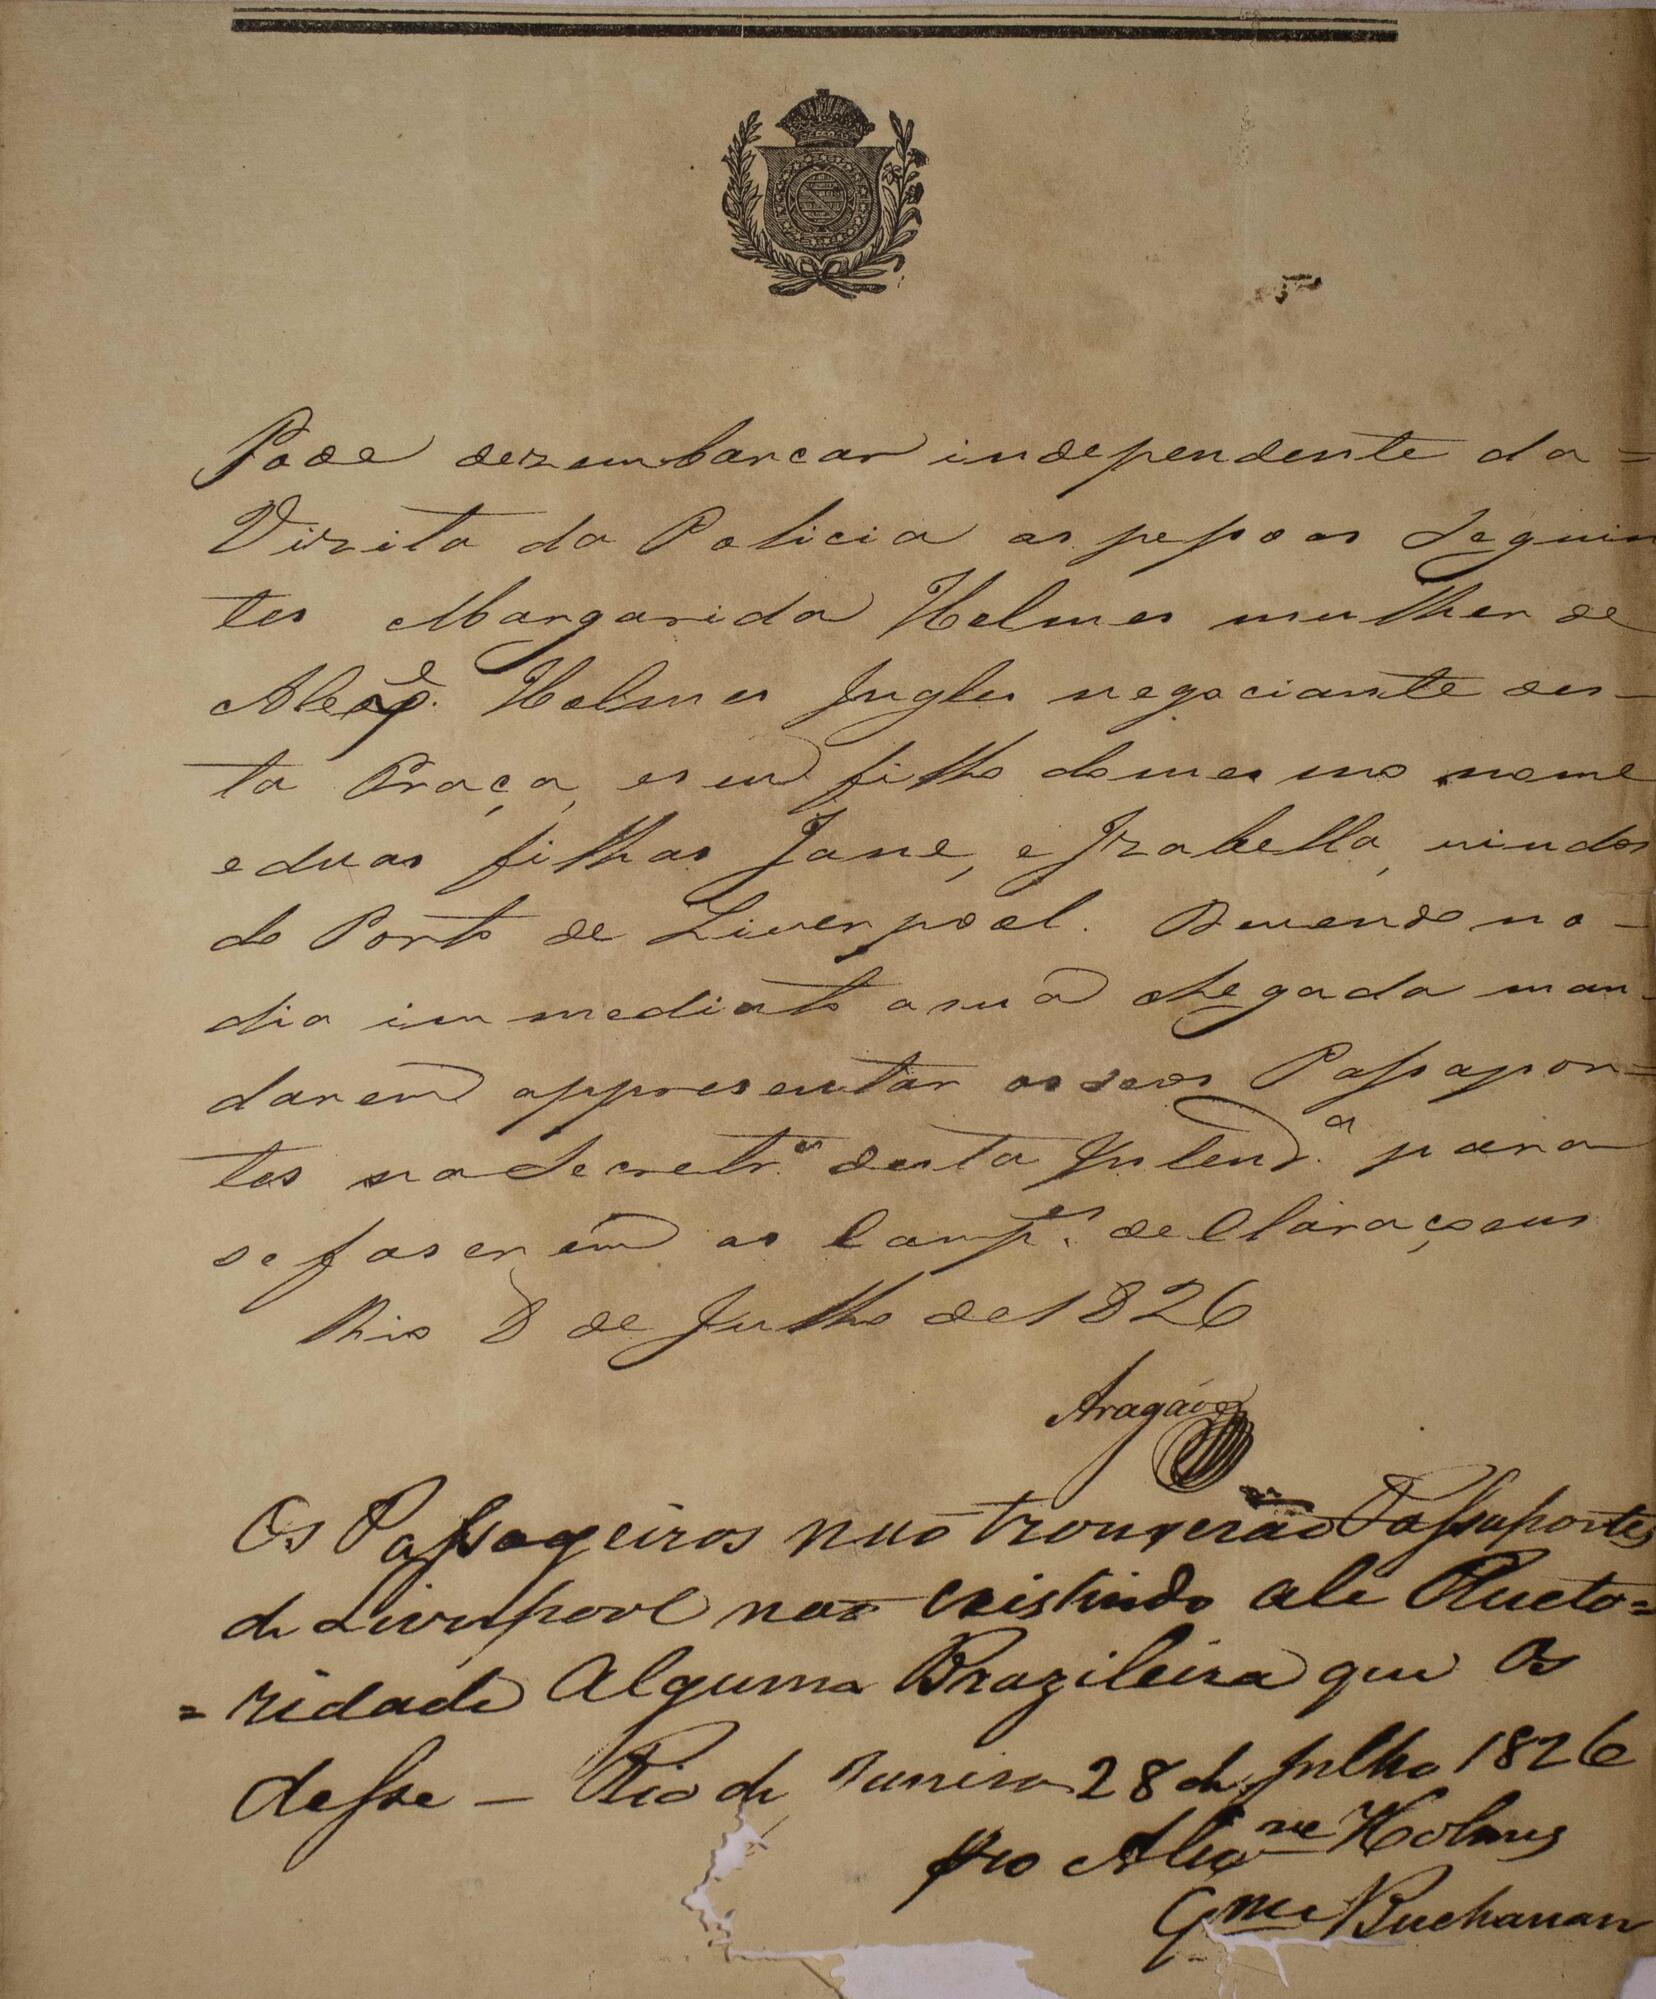 Pode dezembarcar independente da=
Vizita da Policia as pessoas Seguin
tes Margarida Holmes mulher de
Alexe. Holmes Ingles negociante des-
ta Praça, e seu filho do mesmo nome
e duas filhas Jane, e Izabella, vindos
do Porto de Liverpool. Devendo no-
dia immediato a sua chegada man-
darem appresentar os seos Passapor=
tes na Secretr.a desta Intend.a para
se faserem as Comp.es declaraçoens
Rio 8 de Julho de 1826
Aragão
Os Passageiros não trouxerão Passaportes
de Liverpool não existindo ali Aucto=
=ridade Alguma Brazileira que Os
desse — Rio de Janeiro 28 de Julho 1826
pro Alexre Holmes
Gme Buchanan